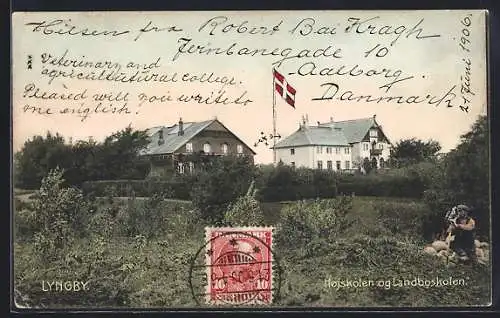 Hilsen fra Robert Bai Kragh
Jernbanegade 10
Aalborg.
Danmark
21 Juni 1906.
Veterinary and
agricultural college.
Pleased will you write to
me english.
LYNGBY.
Højskolen og Landboskolen.
10 10